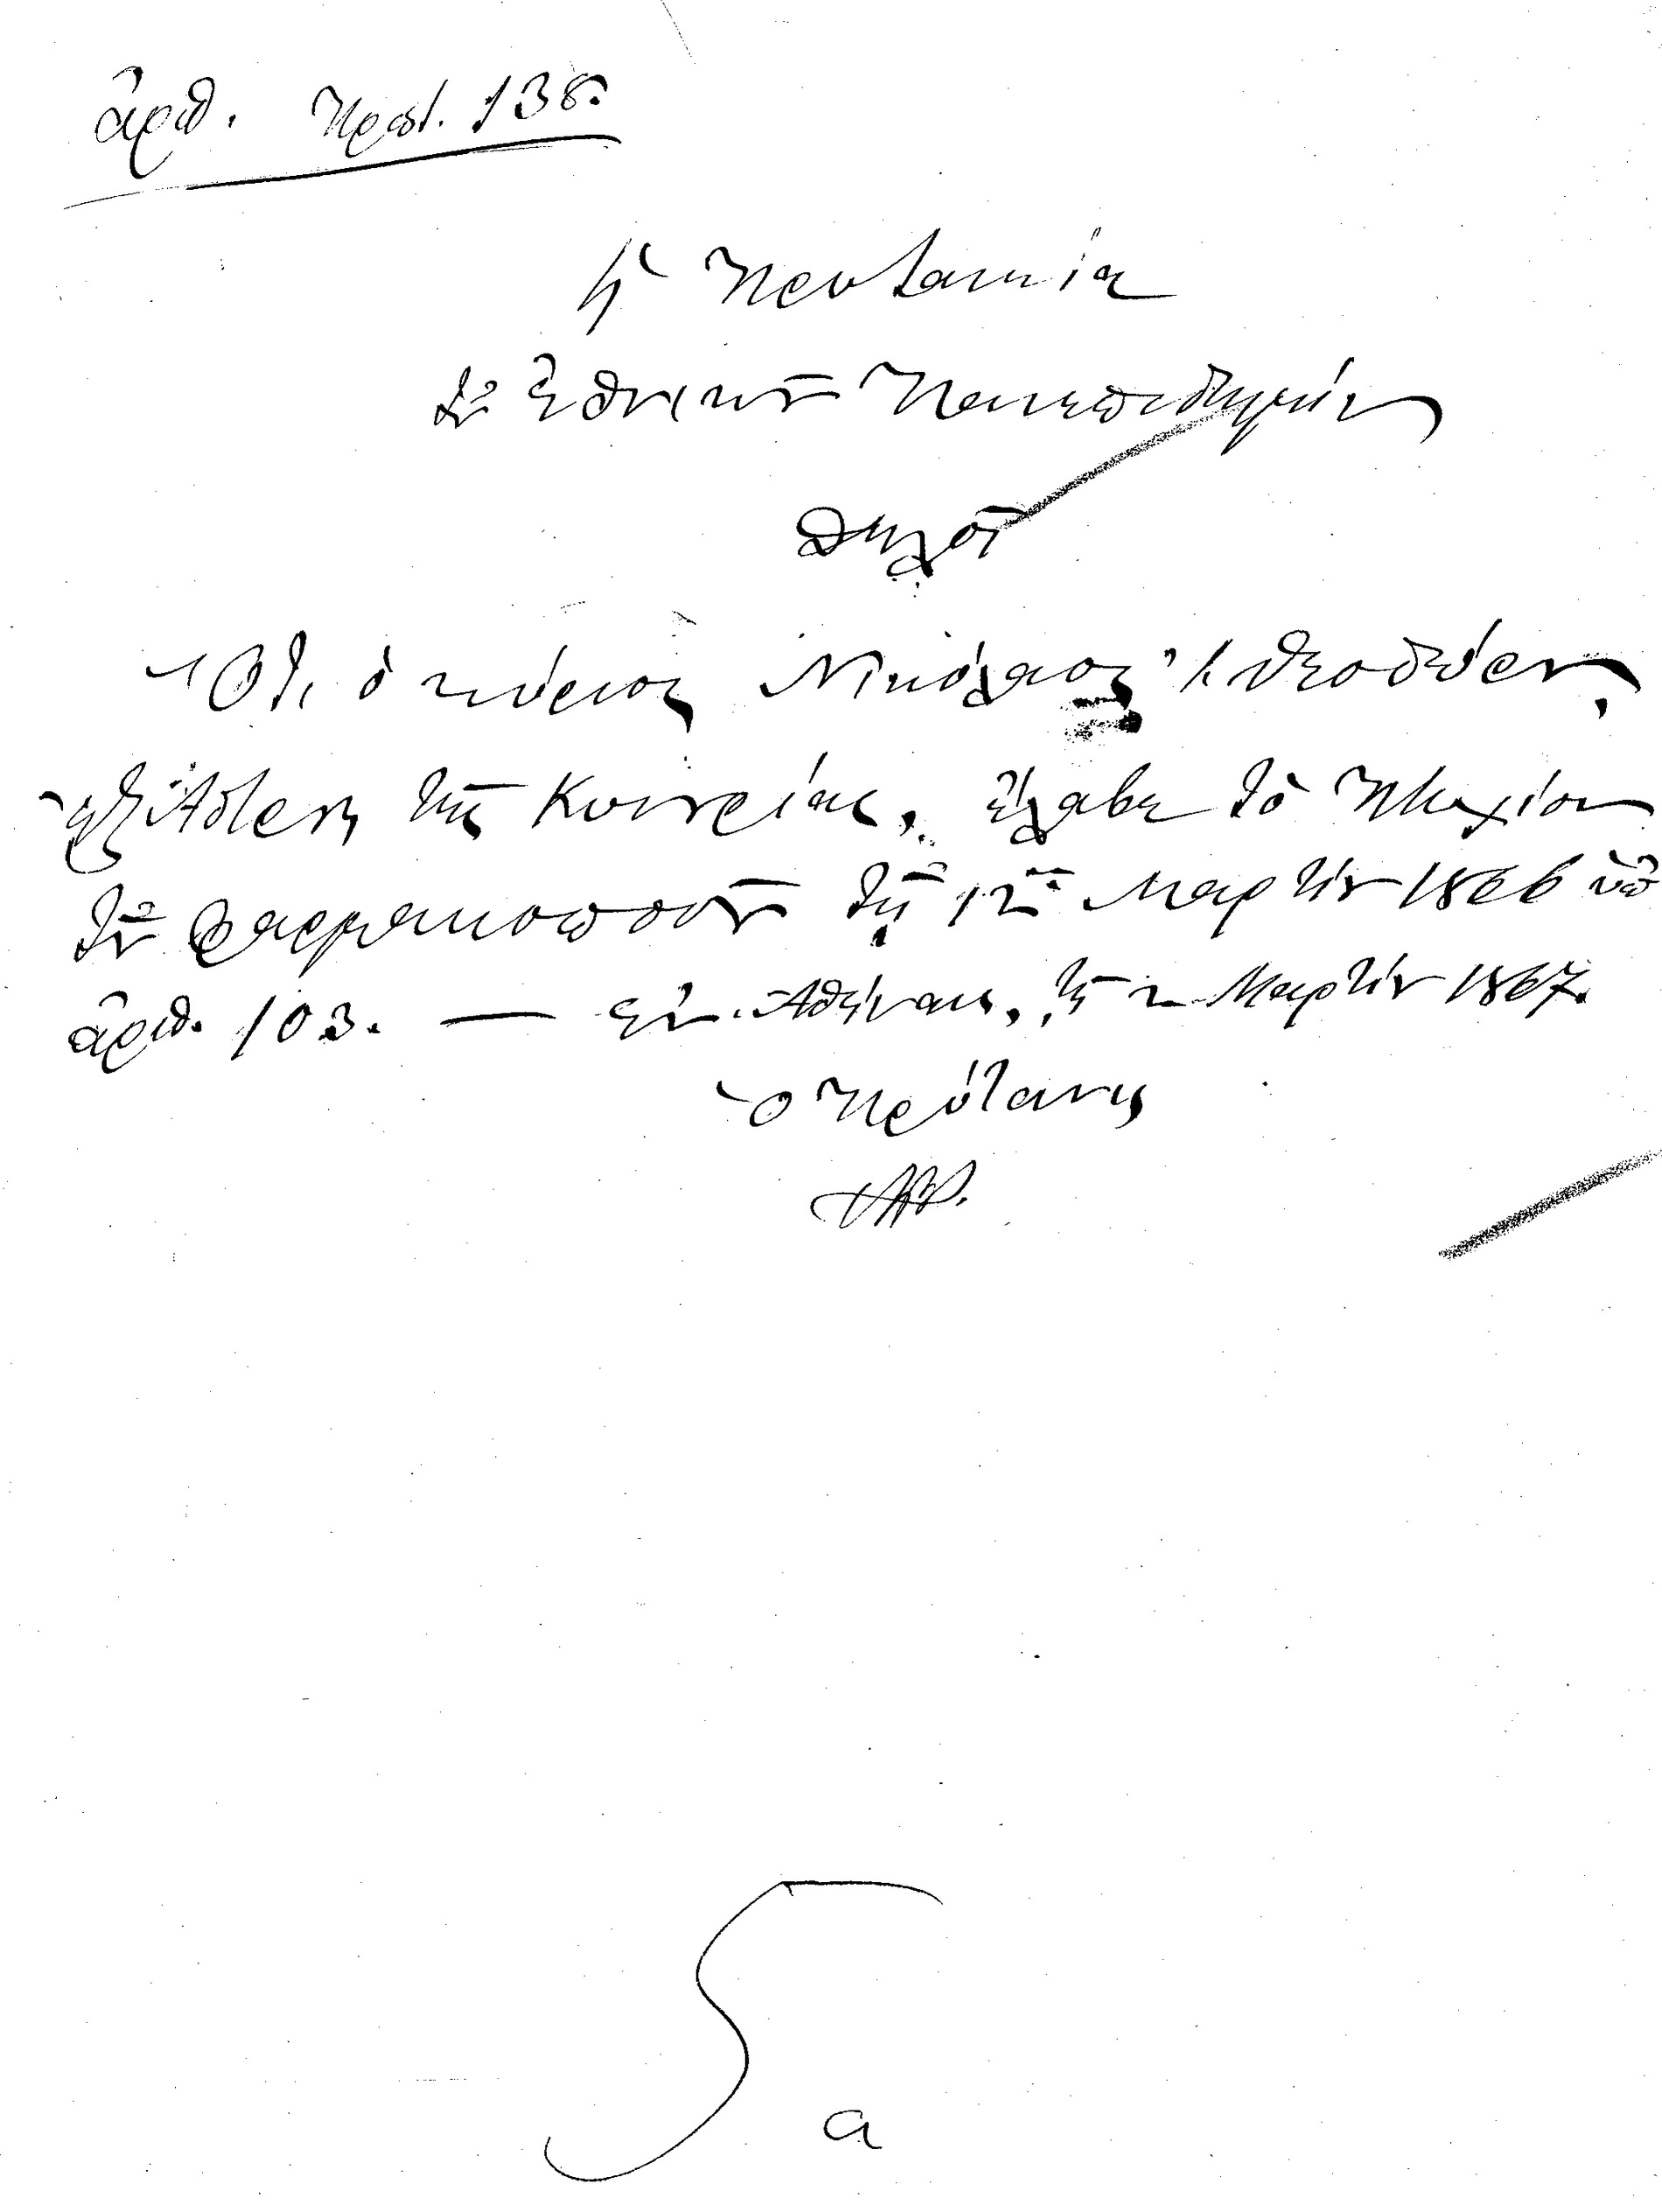 ἀριθ. Πρωτ. 138.
Ἡ Πρυτανεία
τοῦ Ἐθνικοῦ Πανεπιστημίου
Δηλοῖ
Ὅτι ὁ κύριος Νικόλαος Θεοδώρου,
τῆς Κουντρίας, ἔλαβε τὸ Πτυχίον
τοῦ Φαρμακοποιοῦ τῇ 12ῃ Μαρτίου 1866 ὑπ'
ἀριθ. 103. — Ἐν Ἀθήναις, τῇ 2 Μαρτίου 1867.
Ὁ Πρύτανις
a